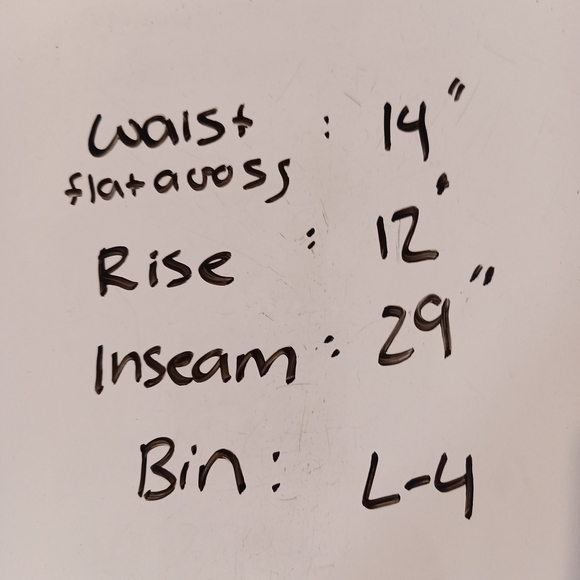 Waist : 14"
flat across
Rise : 12"
Inseam : 29"
Bin : L-4